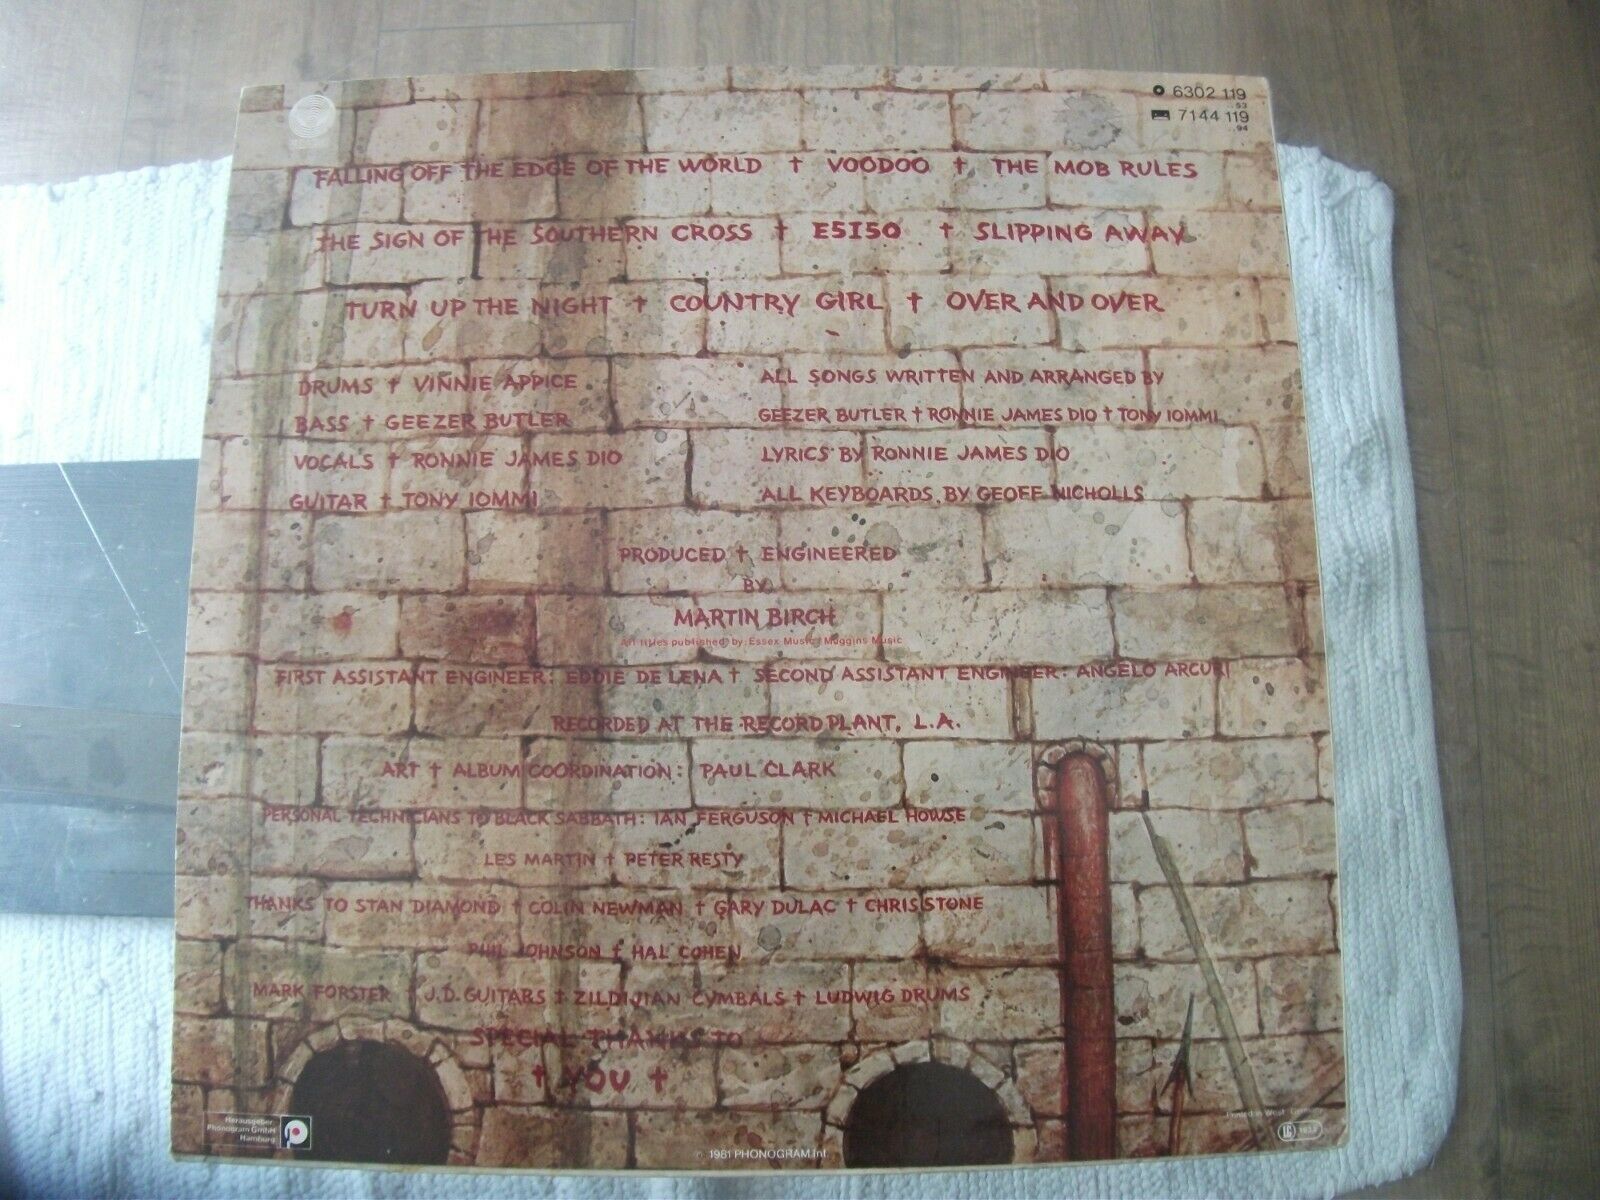 6302 119
..53
7144 119
..94
FALLING OFF THE EDGE OF THE WORLD † VOODOO † THE MOB RULES
THE SIGN OF THE SOUTHERN CROSS † E5150 † SLIPPING AWAY
TURN UP THE NIGHT † COUNTRY GIRL † OVER AND OVER
DRUMS † VINNIE APPICE
BASS † GEEZER BUTLER
VOCALS † RONNIE JAMES DIO
GUITAR † TONY IOMMI
ALL SONGS WRITTEN AND ARRANGED BY
GEEZER BUTLER † RONNIE JAMES DIO † TONY IOMMI
LYRICS BY RONNIE JAMES DIO
ALL KEYBOARDS BY GEOFF NICHOLLS
PRODUCED † ENGINEERED
BY
MARTIN BIRCH
All titles published by Essex Music / Muggins Music
FIRST ASSISTANT ENGINEER: EDDIE DE LENA † SECOND ASSISTANT ENGINEER: ANGELO ARCURI
RECORDED AT THE RECORD PLANT, L.A.
ART † ALBUM COORDINATION: PAUL CLARK
PERSONAL TECHNICIANS TO BLACK SABBATH: IAN FERGUSON † MICHAEL HOWSE
LES MARTIN † PETER RESTY
THANKS TO STAN DIAMOND † COLIN NEWMAN † GARY DULAC † CHRIS STONE
PHIL JOHNSON † HAL COHEN
MARK FORSTER † J.D. GUITARS † ZILDIJIAN CYMBALS † LUDWIG DRUMS
SPECIAL THANKS TO
† YOU †
Herausgeber:
Phonogram GmbH
Hamburg
℗ 1981 PHONOGRAM Int.
Printed in West Germany
LC